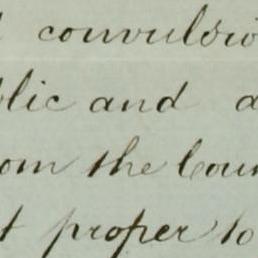 convulsio
blic and a
om the Coun
t proper to